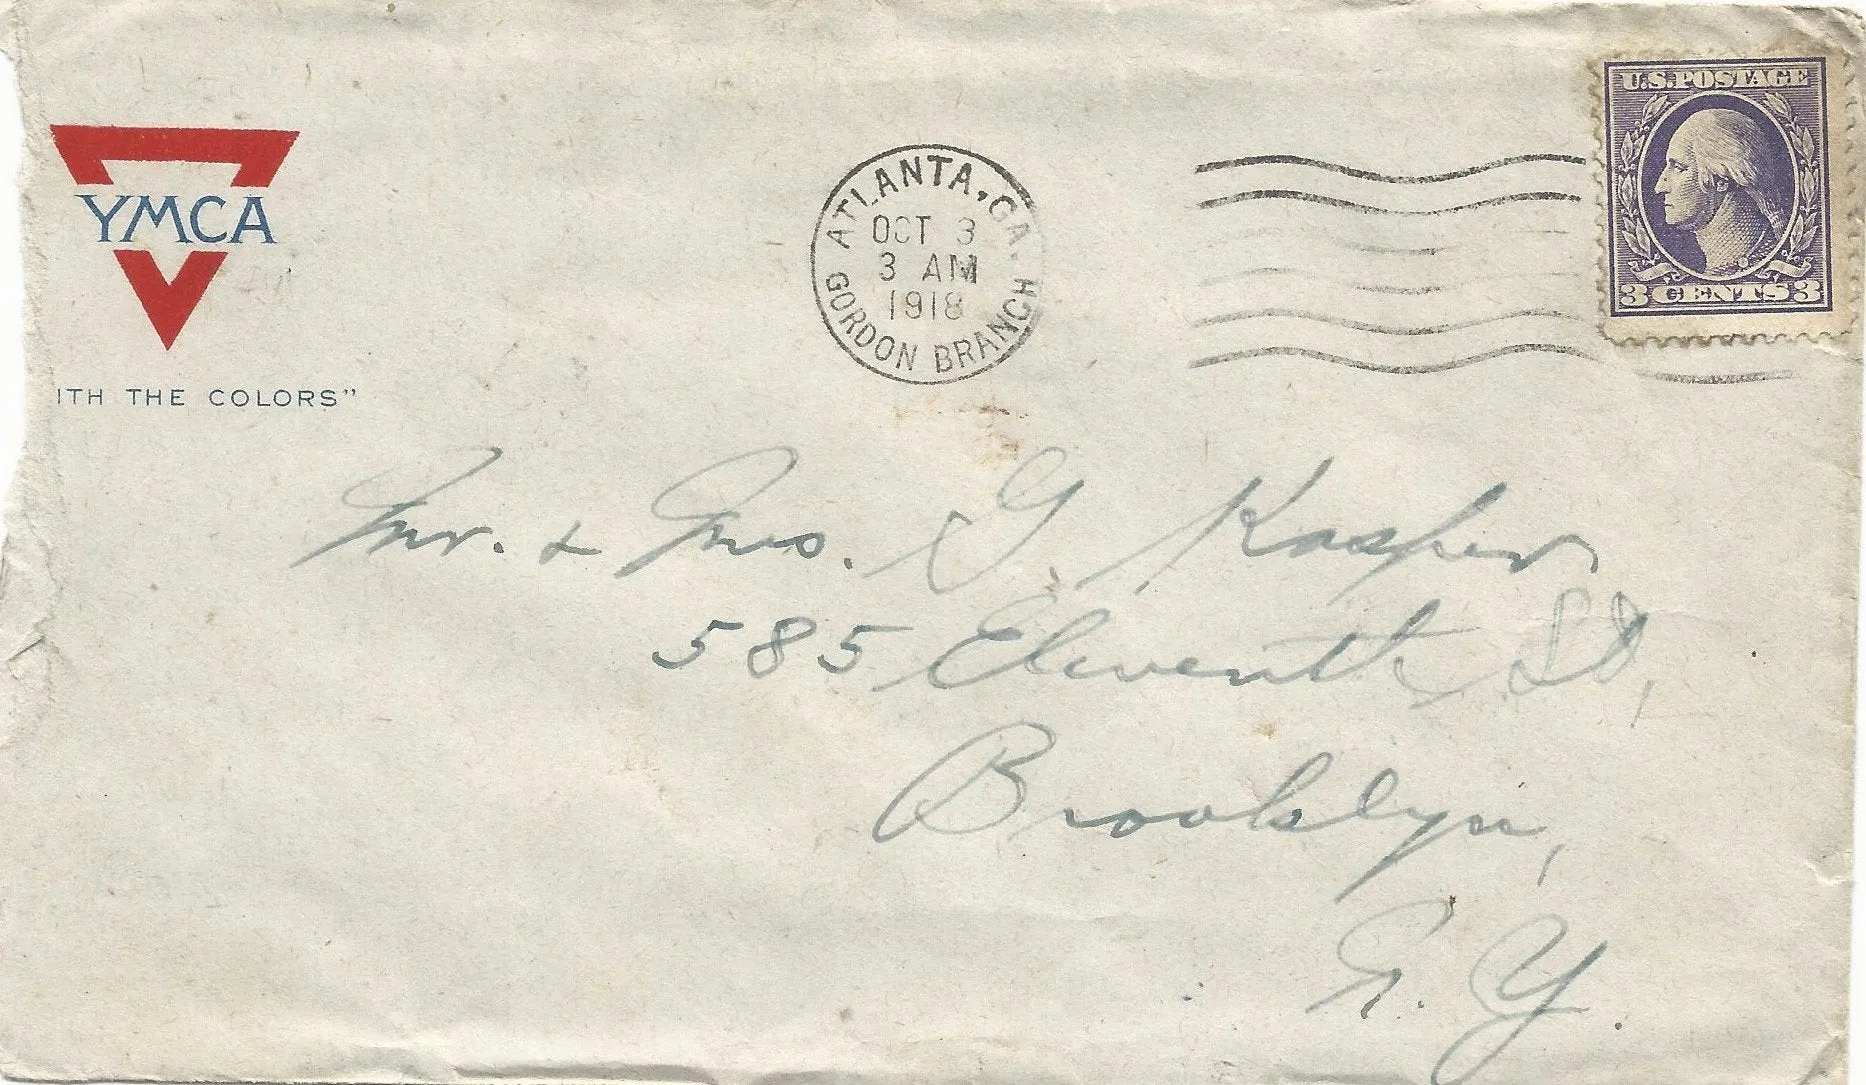 YMCA
ITH THE COLORS"
ATLANTA, GA.
OCT 3
3 AM
1918
GORDON BRANCH
U.S. POSTAGE
3 CENTS 3
Mr. & Mrs. G. Kasper
585 Eleventh St,
Brooklyn,
N. Y.